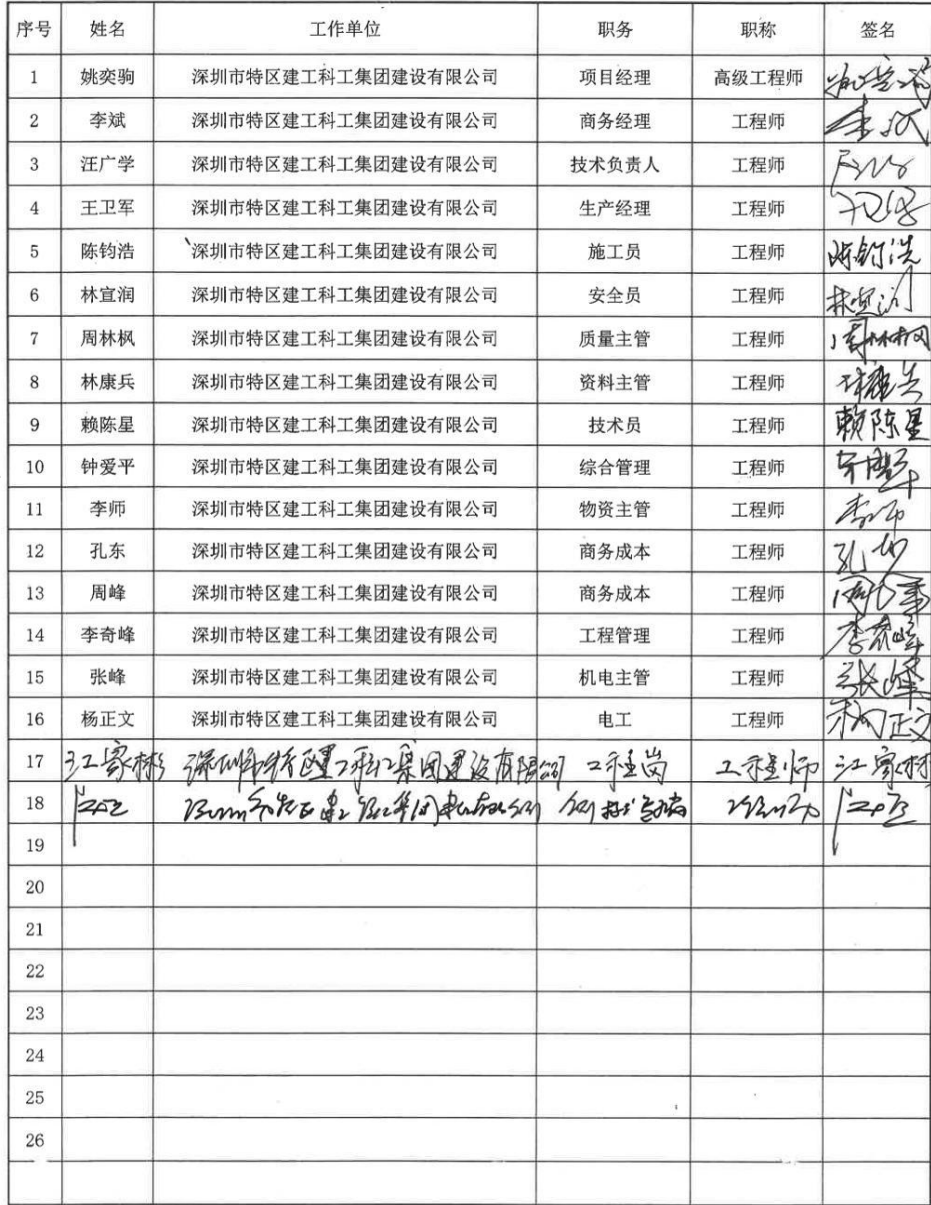 序号 姓名 工作单位 职务 职称 签名
1 姚奕驹 深圳市特区建工科工集团建设有限公司 项目经理 高级工程师
2 李斌 深圳市特区建工科工集团建设有限公司 商务经理 工程师
3 汪广学 深圳市特区建工科工集团建设有限公司 技术负责人 工程师
4 王卫军 深圳市特区建工科工集团建设有限公司 生产经理 工程师
5 陈钧浩 深圳市特区建工科工集团建设有限公司 施工员 工程师 陈钧浩
6 林宣润 深圳市特区建工科工集团建设有限公司 安全员 工程师 林宣润
7 周林枫 深圳市特区建工科工集团建设有限公司 质量主管 工程师 周林枫
8 林康兵 深圳市特区建工科工集团建设有限公司 资料主管 工程师 林康兵
9 赖陈星 深圳市特区建工科工集团建设有限公司 技术员 工程师 赖陈星
10 钟爱平 深圳市特区建工科工集团建设有限公司 综合管理 工程师
11 李师 深圳市特区建工科工集团建设有限公司 物资主管 工程师 李师
12 孔东 深圳市特区建工科工集团建设有限公司 商务成本 工程师 孔东
13 周峰 深圳市特区建工科工集团建设有限公司 商务成本 工程师
14 李奇峰 深圳市特区建工科工集团建设有限公司 工程管理 工程师 李奇峰
15 张峰 深圳市特区建工科工集团建设有限公司 机电主管 工程师 张峰
16 杨正文 深圳市特区建工科工集团建设有限公司 电工 工程师 杨正文
17 江家彬 深圳市特区建工科工集团建设有限公司 工程岗 工程师 江家彬
18 深圳市特区建工科工集团建设有限公司 工程师
19
20
21
22
23
24
25
26